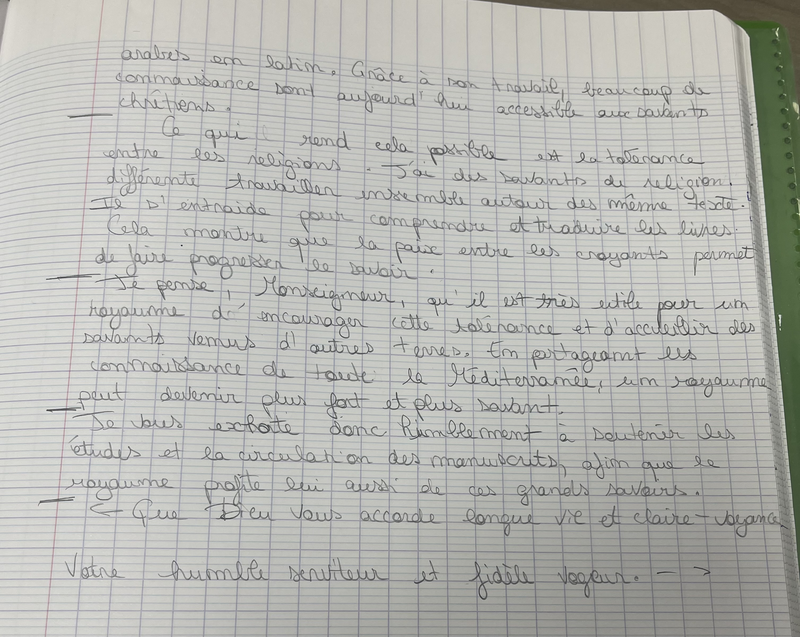 arabes en latin. Grâce à son travail, beaucoup de
connaissance sont aujourd'hui accessible aux savants
chrétiens.
Ce qui rend cela possible est la tolérance
entre les religions. J'ai des savants de religion.
différente travailler ensemble autour des même texte.
Ils s'entraide pour comprendre et traduire les livres.
Cela montre que la paix entre les croyants permet
de faire progresser le savoir.
Je pense, Monseigneur, qu'il est très utile pour un
royaume d'encourager cette tolérance et d'accueillir des
savants venus d'autres terres. En partageant les
connaissance de toute la Méditerranée, un royaume
peut devenir plus fort et plus savant.
Je vous exhorte donc humblement à soutenir les
études et la circulation des manuscrits, afin que le
royaume profite lui aussi de ces grands savoirs.
← Que Dieu vous accorde longue vie et claire-voyance
Votre humble serviteur et fidèle vogeur. — >